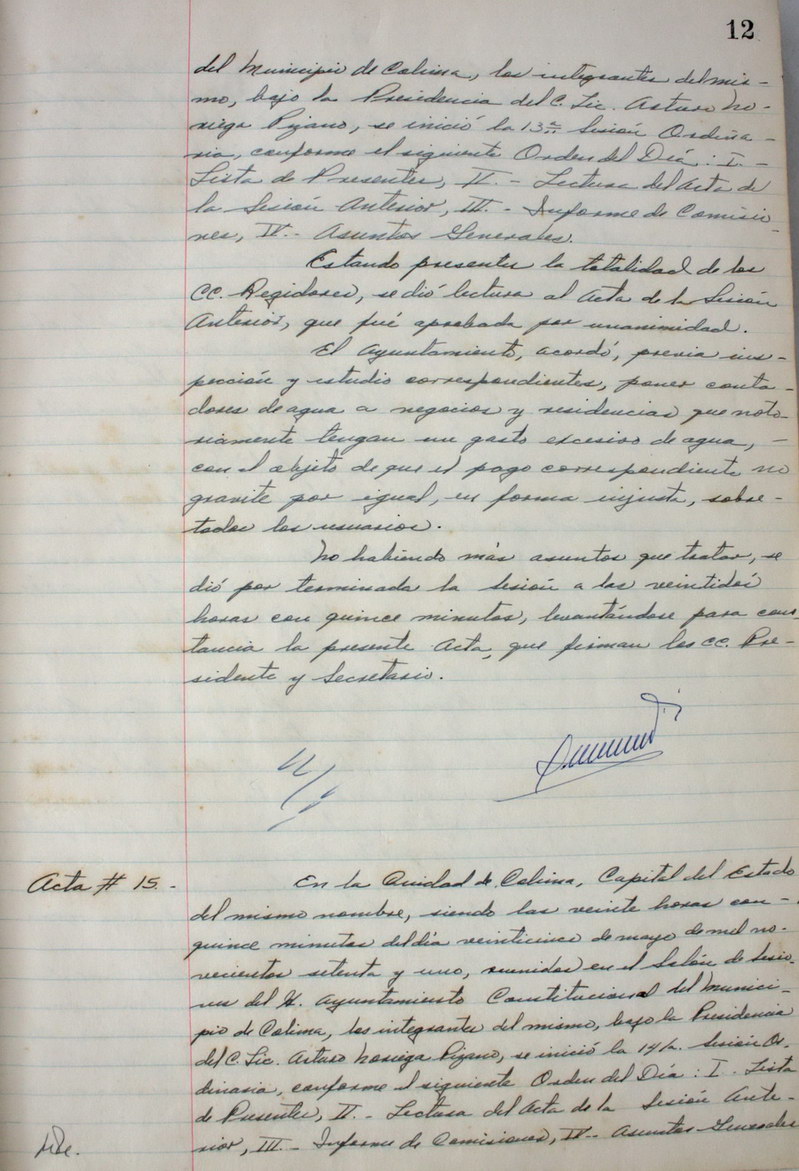 12
del Municipio de Colima, los integrantes del mis-
mo, bajo la Presidencia del C. Lic. Arturo No-
riega Pizano, se inició la 13a. Sesión Ordina-
ria, conforme el siguiente Orden del Día: I.-
Lista de Presentes, II.- Lectura del Acta de
la Sesión Anterior, III.- Informe de Comisio-
nes, IV.- Asuntos Generales.
Estando presentes la totalidad de los
CC. Regidores, se dió lectura al Acta de la Sesión
Anterior, que fué aprobada por unanimidad.
El Ayuntamiento, acordó, previa ins-
pección y estudio correspondientes, poner conta-
dores de agua a negocios y residencias que noto-
riamente tengan un gasto excesivo de agua, -
con el objeto de que el pago correspondiente no
gravite por igual, en forma injusta, sobre-
todos los usuarios.
No habiendo más asuntos que tratar, se
dió por terminada la sesión a las veintidós
horas con quince minutos, levantándose para cons-
tancia la presente Acta, que firman los CC. Pre-
sidente y Secretario.
Acta # 15.-
En la Ciudad de Colima, Capital del Estado
del mismo nombre, siendo las veinte horas con-
quince minutos del día veinticinco de mayo de mil no-
vecientos setenta y uno, reunidos en el Salón de Sesio-
nes del H. Ayuntamiento Constitucional del Munici-
pio de Colima, los integrantes del mismo, bajo la Presidencia
del C. Lic. Arturo Noriega Pizano, se inició la 14a. Sesión Or-
dinaria, conforme el siguiente Orden del Día: I. Lista
de Presentes, II.- Lectura del Acta de la Sesión Ante-
rior, III.- Informe de Comisiones, IV.- Asuntos Generales